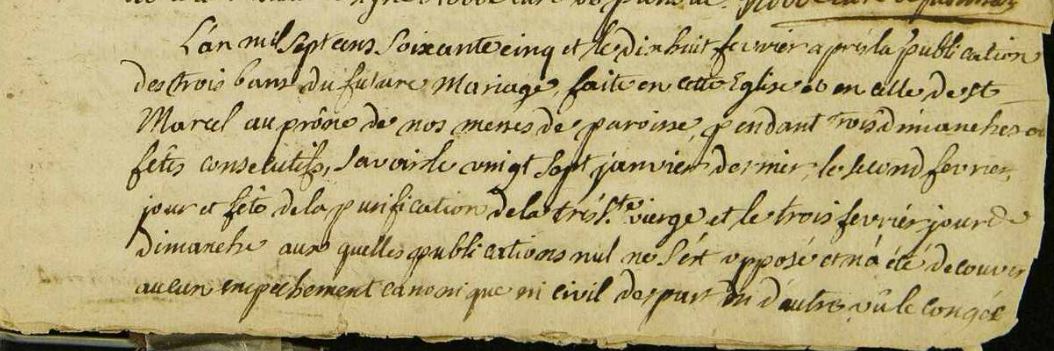 Noble curé de
L'an mil sept cens soixante cinq et le dixhuit fevrier après la publication
des trois bans du future Mariage, faite en cette Eglise et en celle de St
Marcel au prône de nos messes de paroisse, pendant trois dimanches ou
fêtes consecutifs, savoir le vingt sept janvier dernier, le second fevrier,
jour et fête de la purification de la très Ste vierge et le trois fevrier jour de
dimanche aux quelles publications nul ne s'ést opposé et n'a été decouver
aucun empêchement canonique ni civil de part ou d'autre, vû le congée